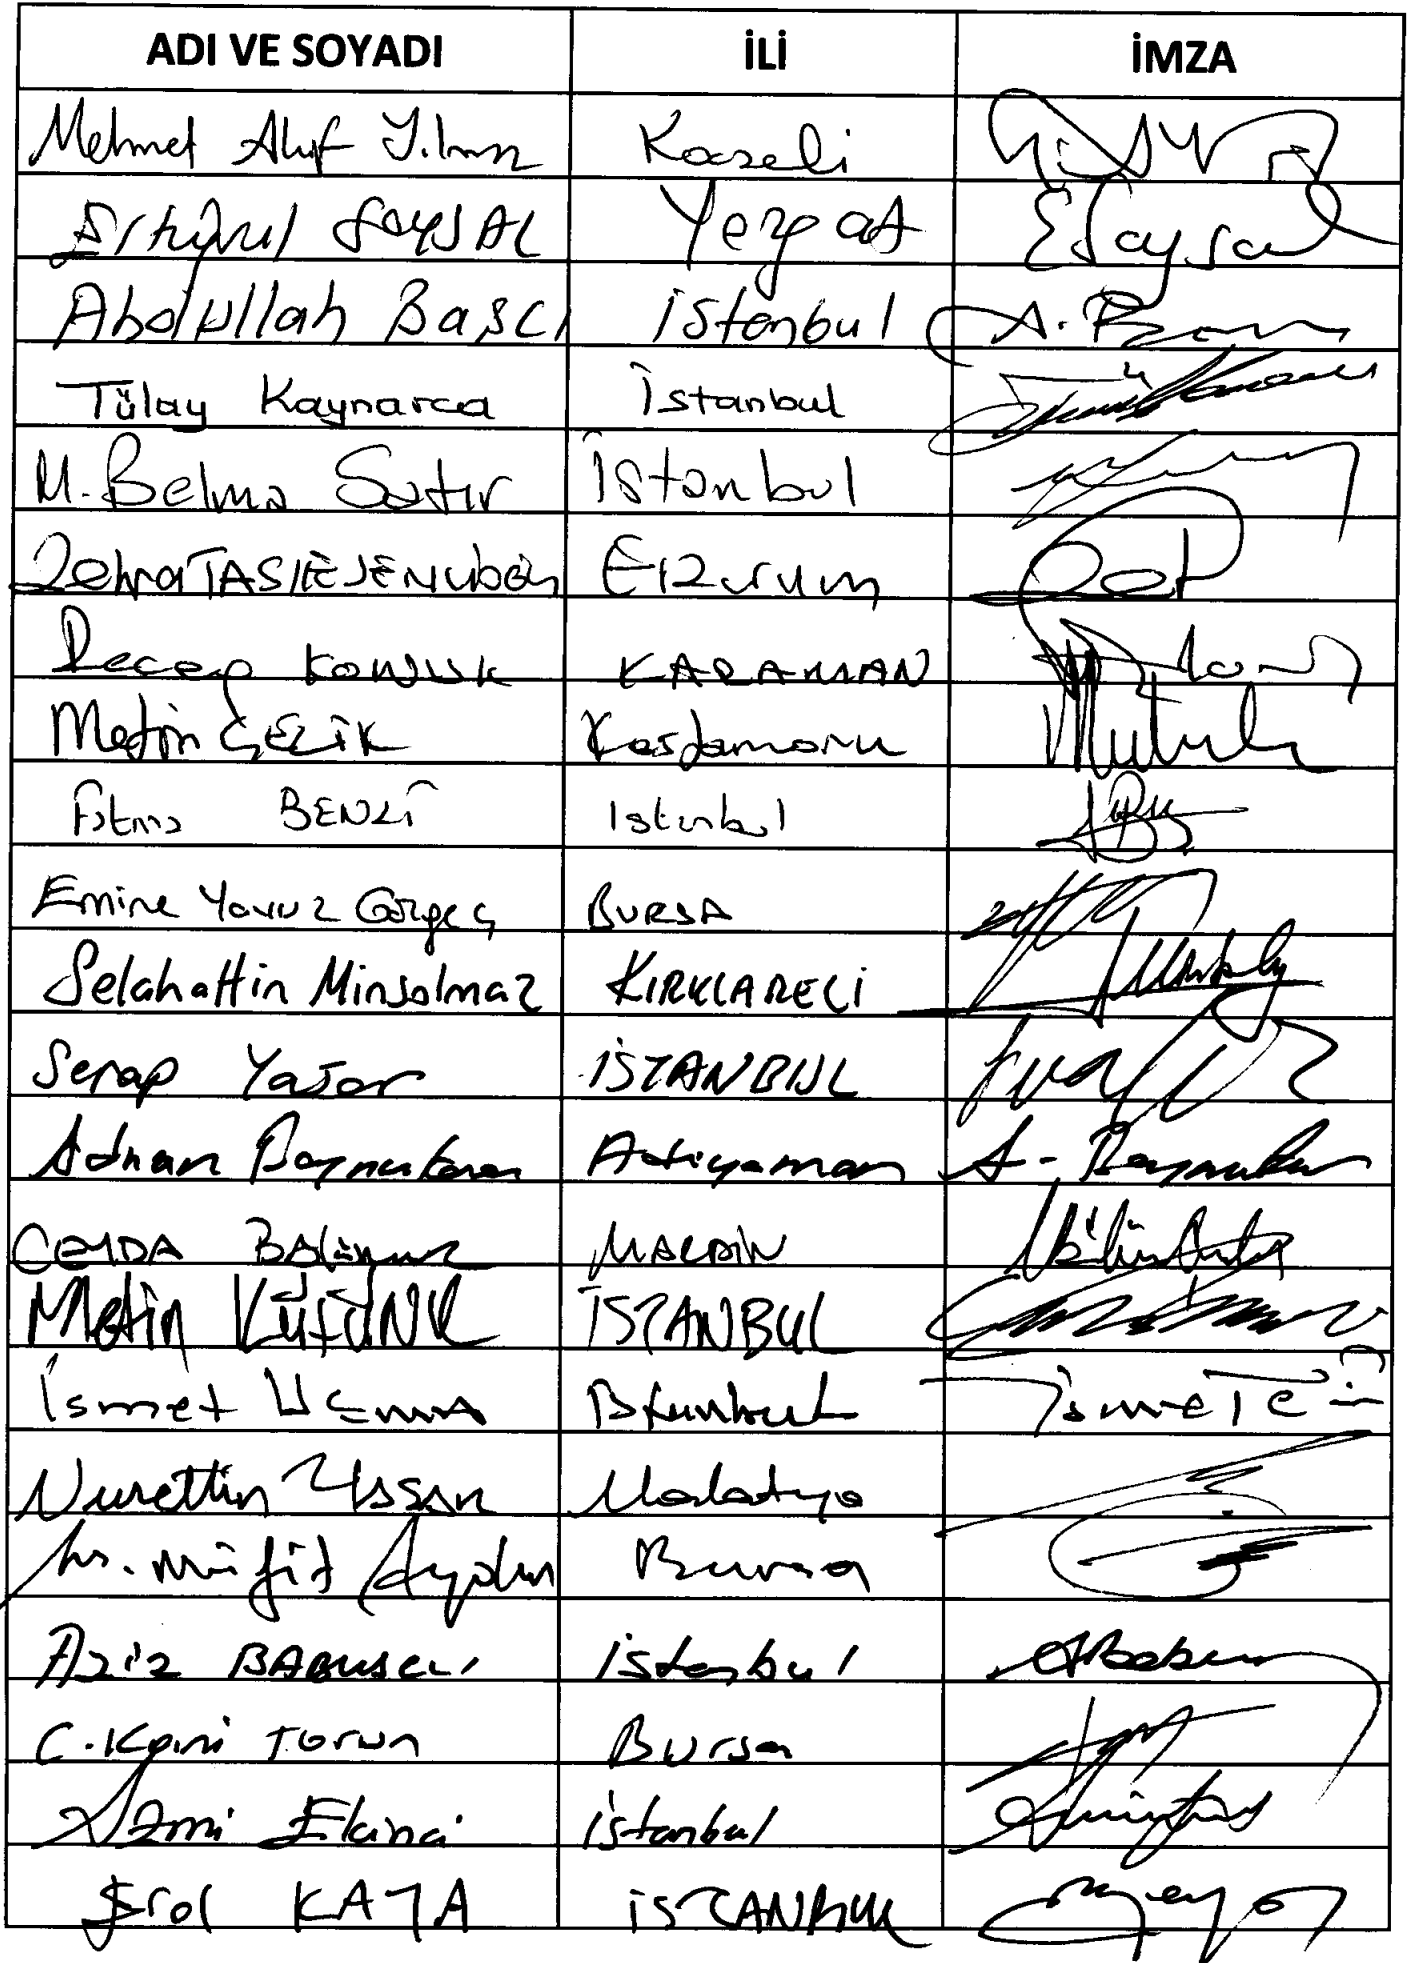 ADI VE SOYADI İLİ İMZA
Mehmet Akif Yılmaz Kocaeli
Ertuğrul SOYSAL Yozgat ESoysal
Abdullah BAŞCI İstanbul A. B
Tülay Kaynarca İstanbul
M. Belma Satır İstanbul
Zehra TAŞKESENLİOĞLU Erzurum
Recep KONUK KARAMAN
Metin ÇELİK Kastamonu
Fatma BENLİ Istanbul
Emine Yavuz Gözgeç BURSA
Selahattin Minsolmaz KIRKLARELİ
Serap Yaşar İSTANBUL
Adnan Boynukara Adıyaman A. Boynukara
CEYDA Bölünmez MARDİN
Metin KÜLÜNK İSTANBUL
İsmet UÇMA İstanbul İsmet
Nurettin Yaşar Malatya
M. Müfit Aydın Bursa
Aziz BABUŞCU İstanbul ABabuş
C. Kani Torun Bursa
Azmi Ekinci İstanbul
Erol KAYA İSTANBUL